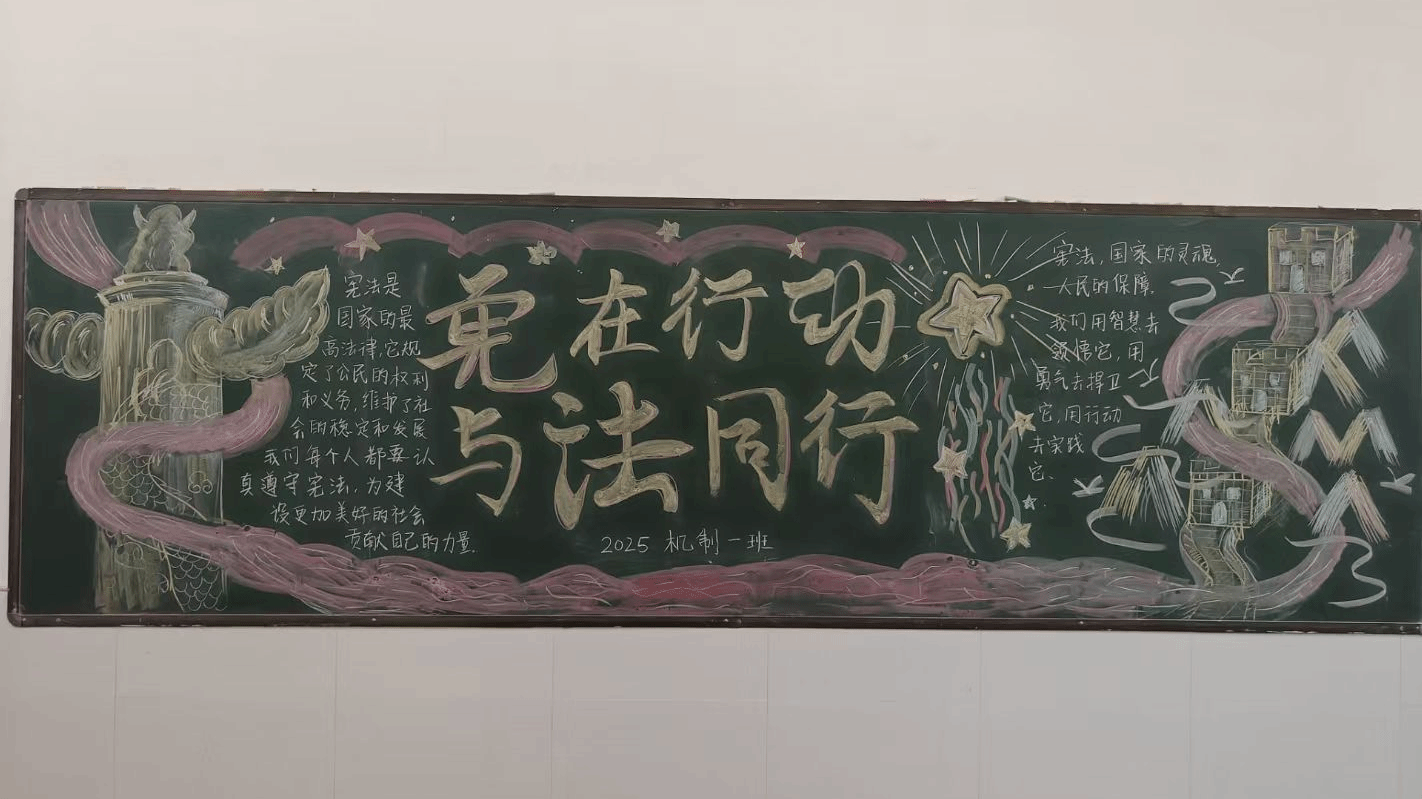 宪法是
国家的最
高法律,它规
定了公民的权利
和义务,维护了社
会的稳定和发展
我们每个人都要认
真遵守宪法,为建
设更加美好的社会
贡献自己的力量.
宪在行动
与法同行
2025 机制一班
宪法,国家的灵魂,
人民的保障.
我们用智慧去
领悟它,用
勇气去捍卫
它,用行动
去实践
它.